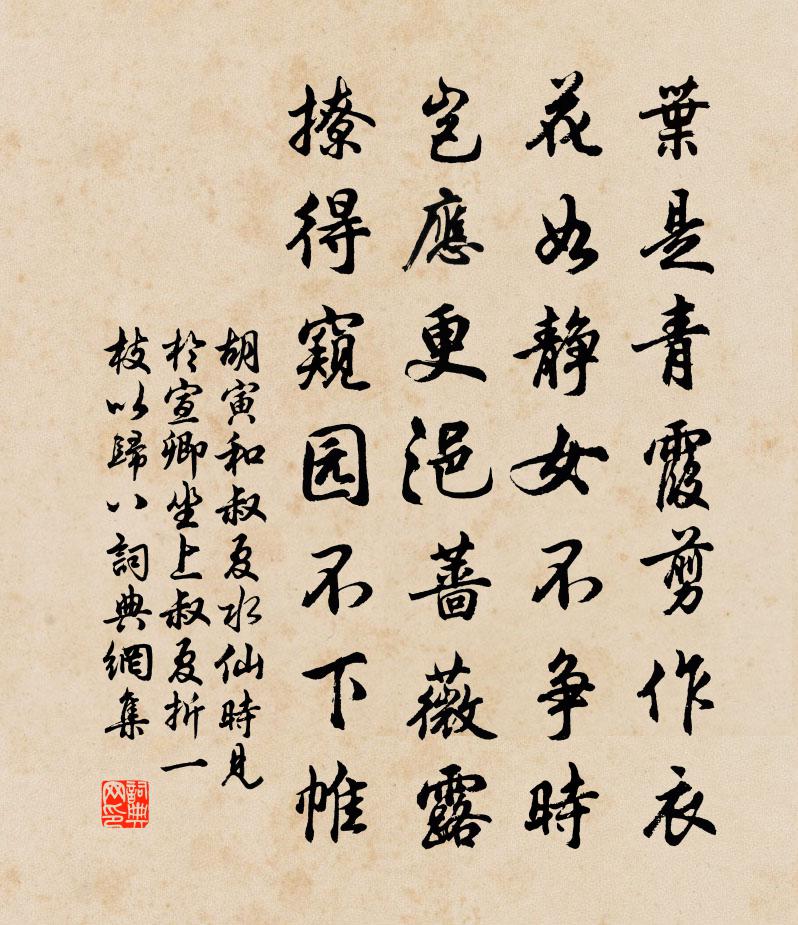 葉是青霞剪作衣
花如静女不争時
岂應更浥薔薇露
撩得窺园不下帷
胡寅和叔夏水仙時見
於宣卿坐上叔夏折一
枝以歸八詞典網集
詞典
网印